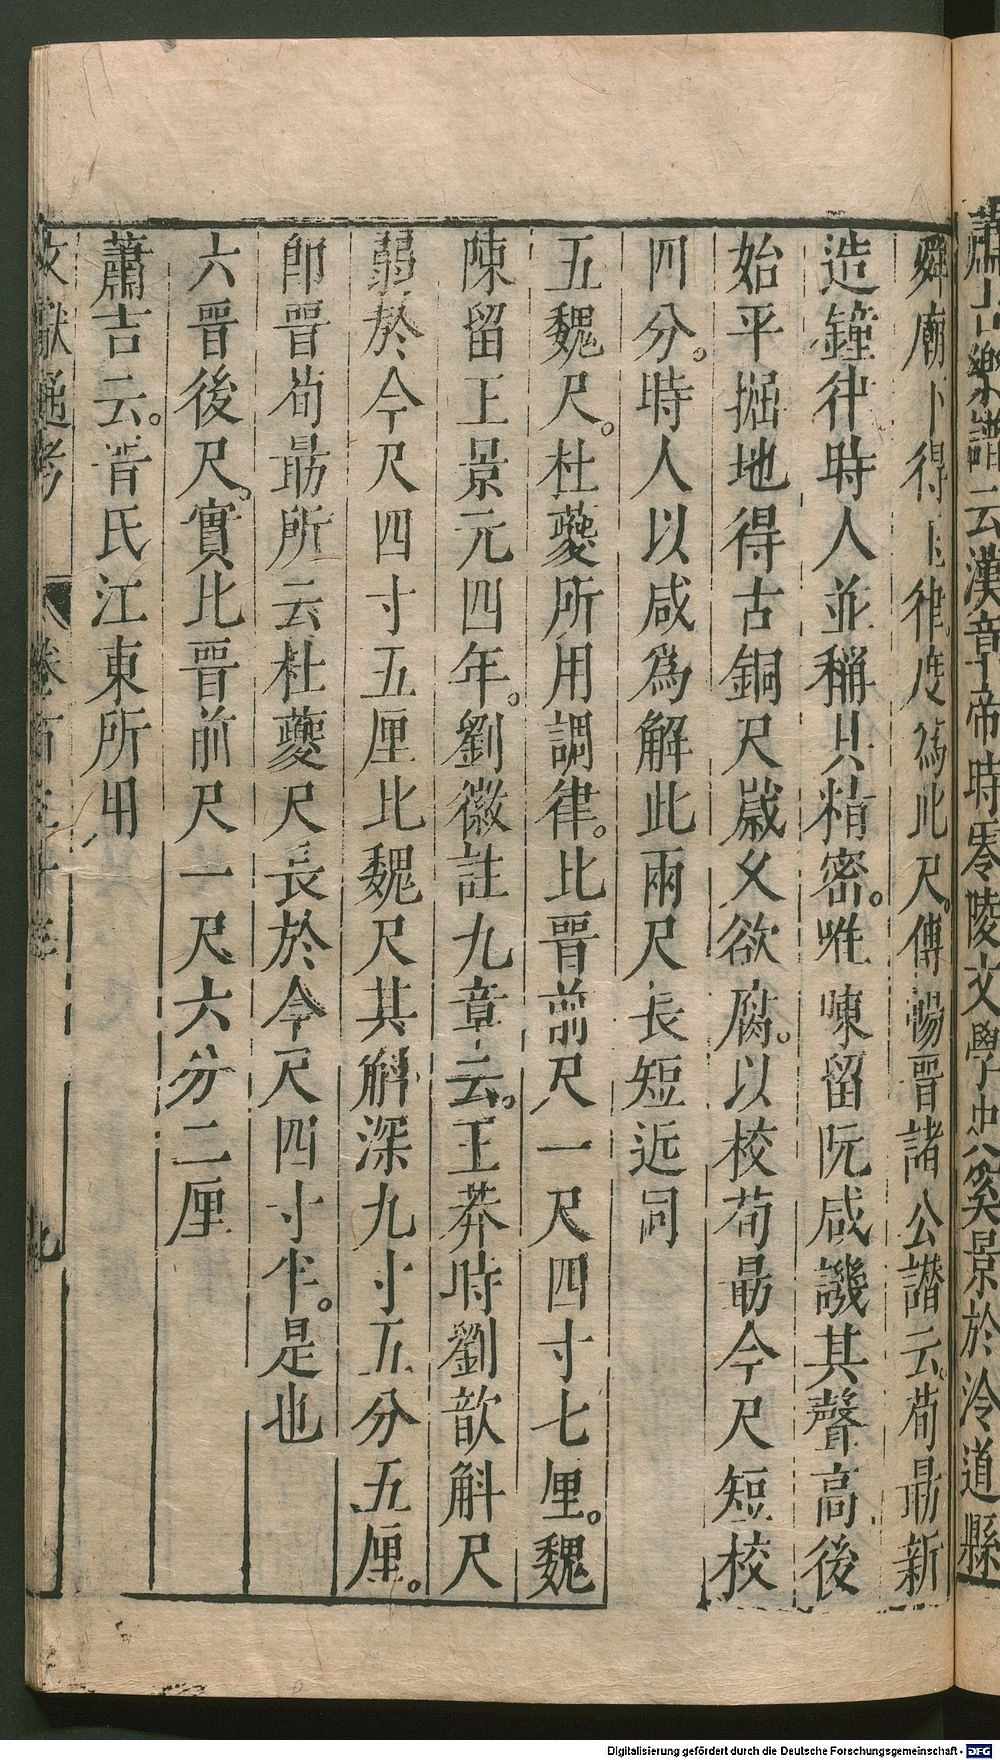 蕭吉樂譜云漢章帝時零陵文學史奚景於泠道縣
舜廟下得玉律度爲此尺。傅暢晉諸公讃云。荀勗新
造鐘律時人並稱其精密。唯陳留阮咸譏其聲高後
始平掘地得古銅尺歲久欲腐。以校荀勗今尺短校
四分。時人以咸爲解此兩尺長短近同
五魏尺。杜夔所用調律。比晉前尺一尺四寸七厘。魏
陳留王景元四年。劉徽註九章云。王莽時劉歆斛尺
弱於今尺四寸五厘比魏尺其斛深九寸五分五厘。
卽晉荀勗所云杜夔尺長於今尺四寸半。是也
六晉後尺。實比晉前尺一尺六分二厘
蕭吉云。晉氏江東所用
文獻通考 卷百三十三 九
Digitalisierung gefördert durch die Deutsche Forschungsgemeinschaft - DFG